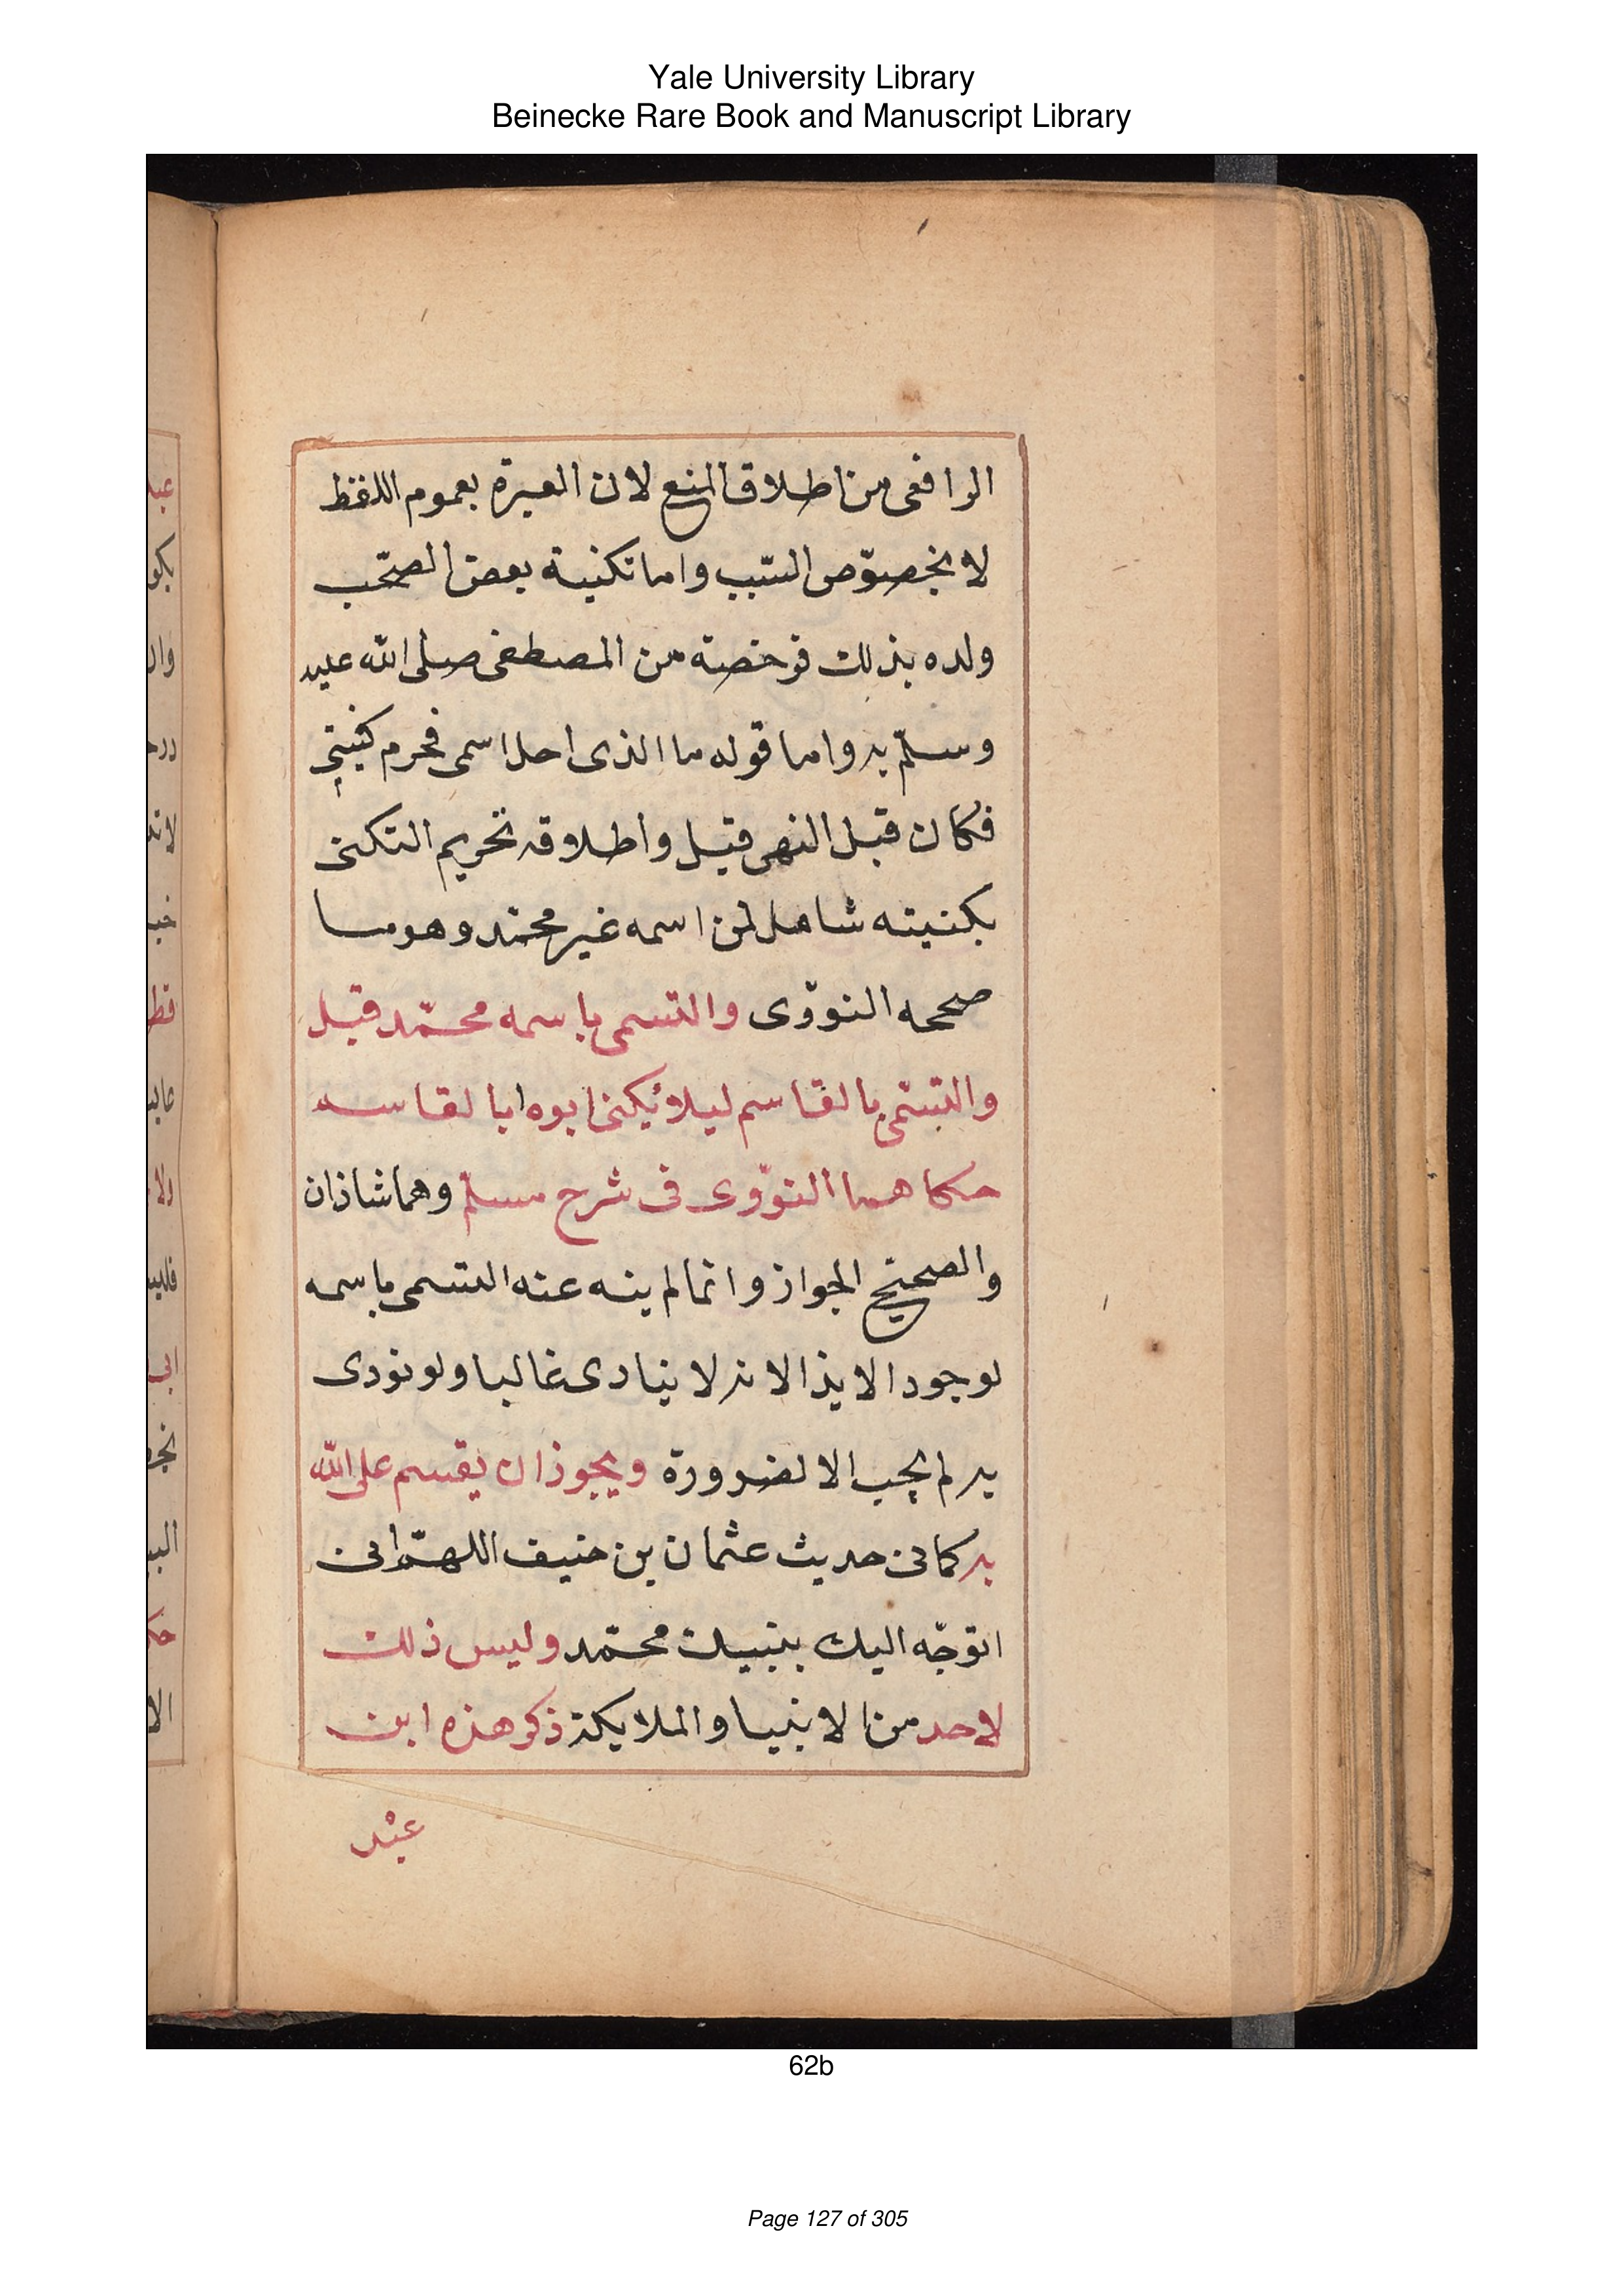 Yale University Library
Beinecke Rare Book and Manuscript Library
الرافعى من اطلاق المنع لان العبرة بعموم اللفظ
لا بخصوّص السّبب واما تكنية بعض الصّحب
ولده بذلك فرخصة من المصطفى صلى الله عليه
وسلّم به واما قوله ما الذى احل اسمى فحرم كنيتي
فكان قبل النهى قيل واطلاقه تحريم التكنى
بكنيته شامل لمن اسمه غير محمّد وهو ما
صححه النووّى والتسمى باسمه محمّد قيل
والتسّمى بالقاسم ليلا يُكنى ابوه ابا لقاسم
حكاهما النووّى فى شرح مسلمّ وهما شاذان
والصحيح الجواز وانما لم ينه عنه التسمى باسمه
لوجود الايذا لانه لا ينادى غالبا ولو نودى
به لم يجب الا لضرورة ويجوز ان يقسم على الله
به كما فى حديث عثمان بن حنيف اللهمّ انى
اتوجّه اليك بنبيك محمّد وليس ذلك
لاحد من الانبيا والملايكة ذكر هذه ابن
عبْد
62b
Page 127 of 305